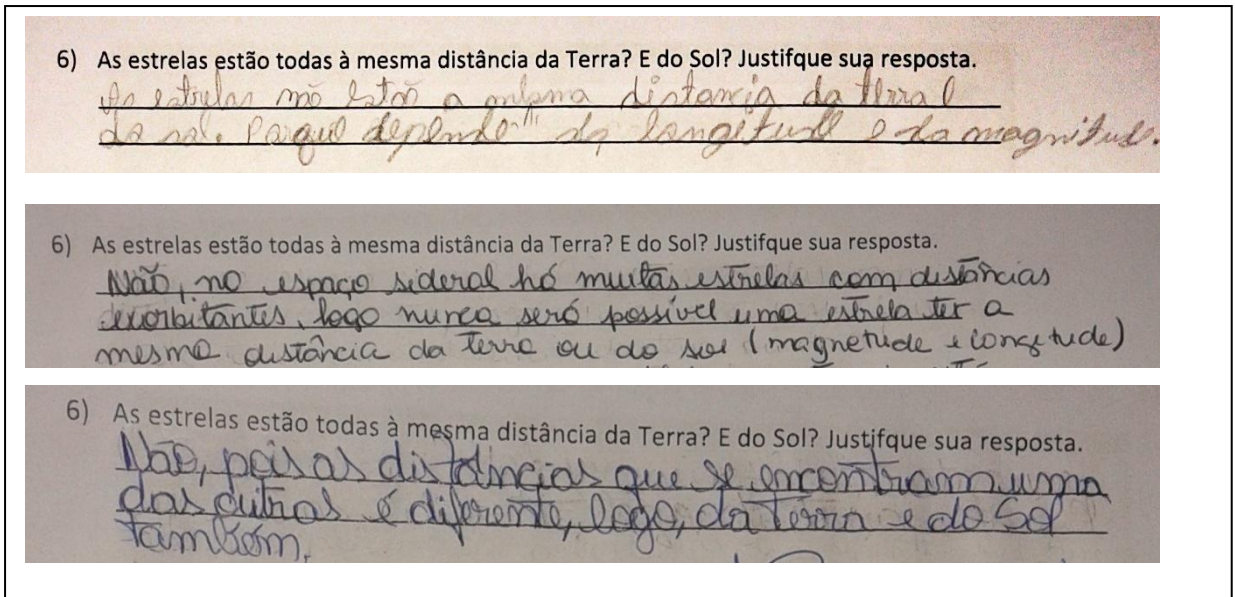 6) As estrelas estão todas à mesma distância da Terra? E do Sol? Justifque sua resposta.
As estrelas não estão a mesma distancia da terra e
do sol. Porque depende da longitude e da magnitude.
6) As estrelas estão todas à mesma distância da Terra? E do Sol? Justifque sua resposta.
Não, no espaço sideral há muitas estrelas com distâncias
exorbitantes, logo nunca será possível uma estrela ter a
mesma distância da terra ou do sol (magnetude e longetude)
6) As estrelas estão todas à mesma distância da Terra? E do Sol? Justifque sua resposta.
Não, pois as distâncias que se encontram uma
das outras é diferente, logo, da Terra e do Sol
também.